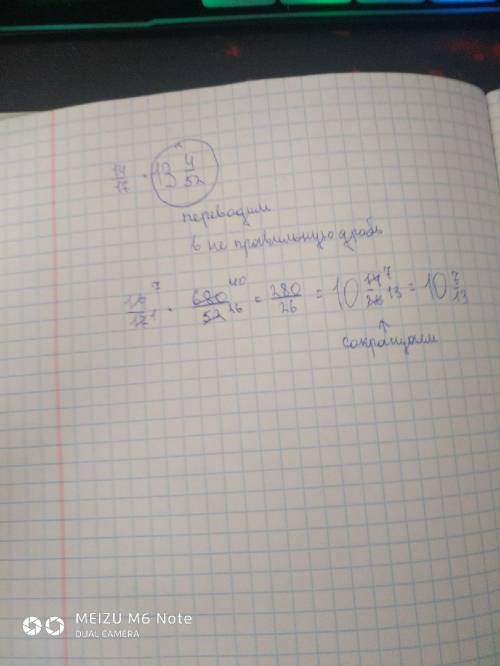 14/17 · 13 4/52
переводим
в не правильную дробь
14/17 7 1 · 680/52 40 26 = 280/26 = 10 14/26 7 13 = 10 7/13
сокращаем
MEIZU M6 Note
DUAL CAMERA